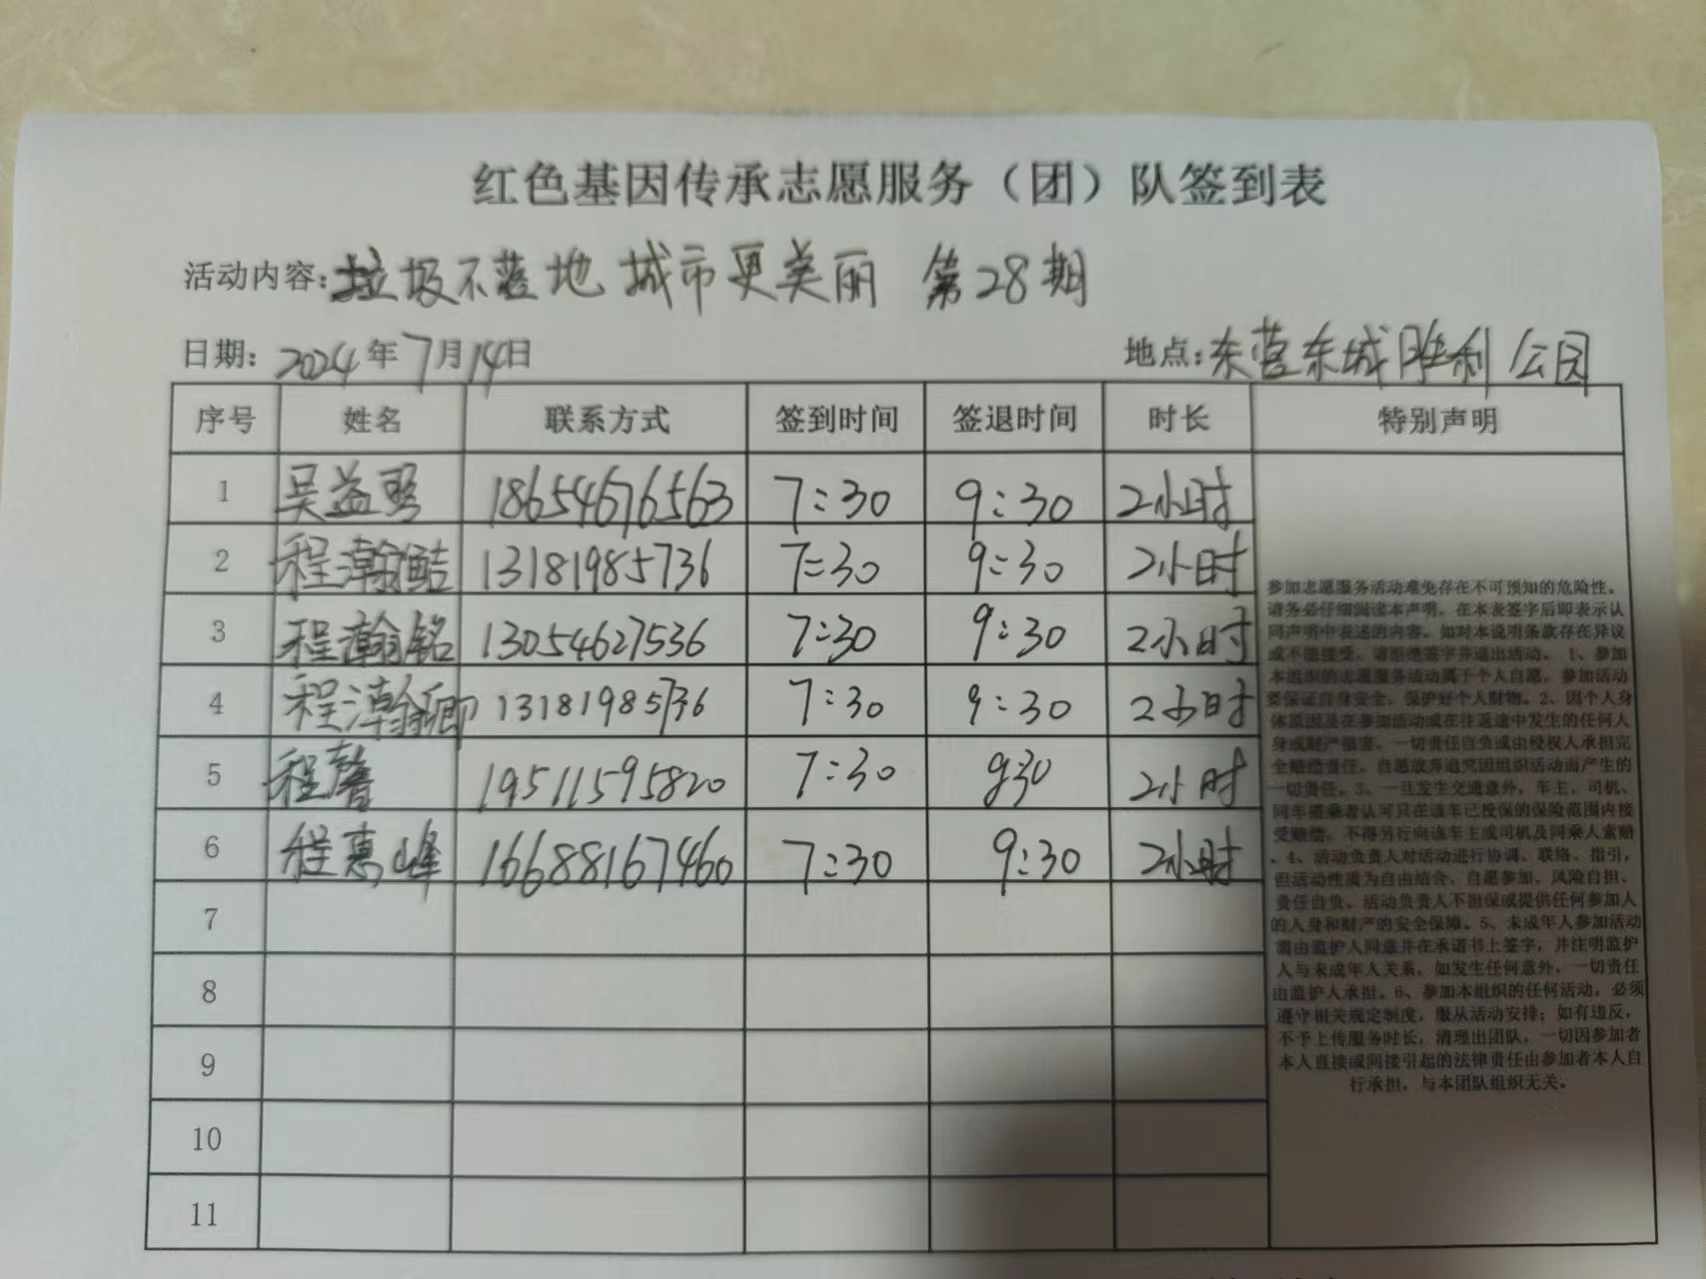 红色基因传承志愿服务（团）队签到表
活动内容：垃圾不落地 城市更美丽 第28期
日期：2024年7月14日 地点：东营东城胜利公园
序号 姓名 联系方式 签到时间 签退时间 时长 特别声明
1 吴益 18654676563 7:30 9:30 2小时
2 程瀚 13181985736 7:30 9:30 2小时
3 程瀚铭 13054627536 7:30 9:30 2小时
4 程瀚卿 13181985736 7:30 9:30 2小时
5 程馨 19511595820 7:30 930 2小时
6 程惠峰 16688167460 7:30 9:30 2小时
7
8
9
10
11
参加志愿服务活动难免存在不可预知的危险性，
请务必仔细阅读本声明，在本表签字后即表示认
同声明中表述的内容。如对本说明条款存在异议
或不能接受，请拒绝签字并退出活动。1、参加
本组织的志愿服务活动属于个人自愿，参加活动
要保证自身安全，保护好个人财物。2、因个人身
体原因及在参加活动或在往返途中发生的任何人
身或财产损害，一切责任自负或由侵权人承担完
全赔偿责任，自愿放弃追究因组织活动而产生的
一切责任。3、一旦发生交通意外，车主、司机、
同车搭乘者认可只在该车已投保的保险范围内接
受赔偿，不得另行向该车主或司机及同乘人索赔
。4、活动负责人对活动进行协调、联络、指引，
但活动性质为自由结合，自愿参加，风险自担、
责任自负。活动负责人不担保或提供任何参加人
的人身和财产的安全保障。5、未成年人参加活动
需由监护人同意并在承诺书上签字，并注明监护
人与未成年人关系，如发生任何意外，一切责任
由监护人承担。6、参加本组织的任何活动，必须
遵守相关规定制度，服从活动安排；如有违反，
不予上传服务时长，清理出团队，一切因参加者
本人直接或间接引起的法律责任由参加者本人自
行承担，与本团队组织无关。